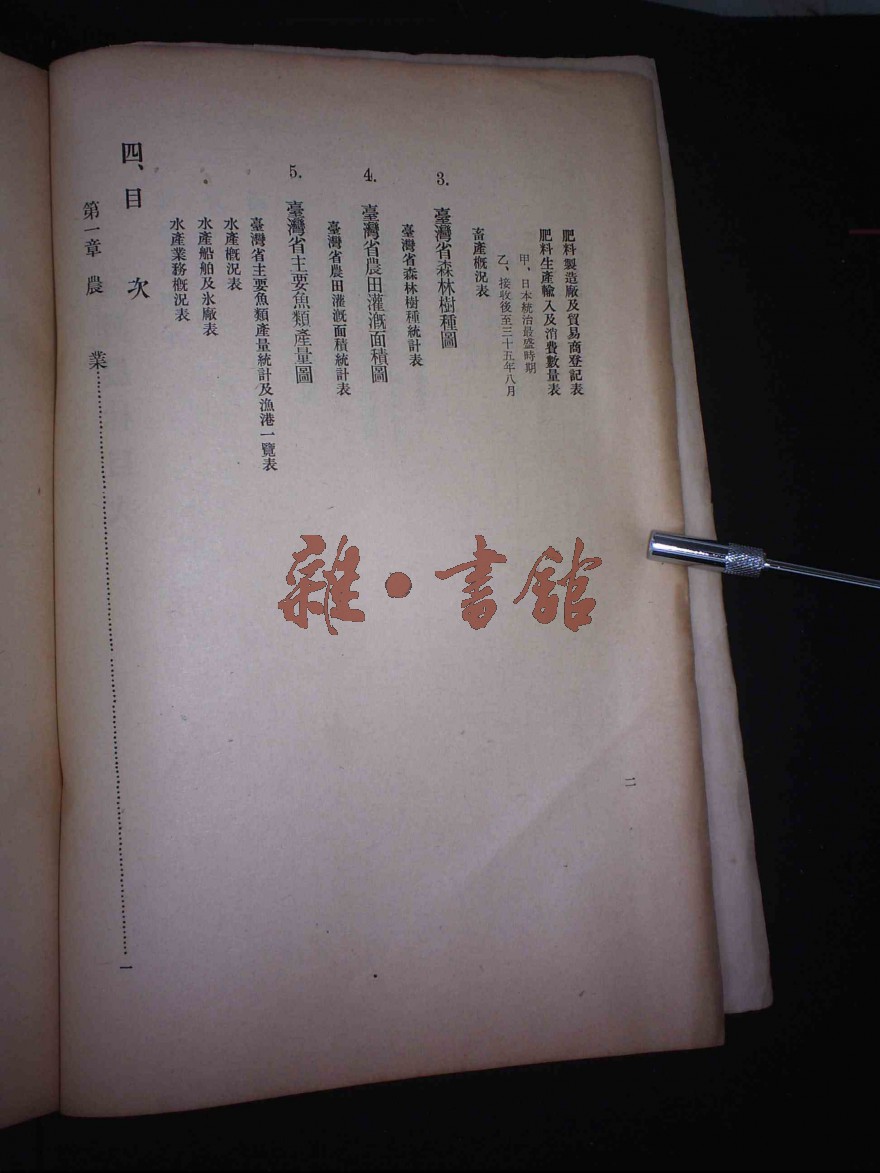 肥料製造廠及貿易商登記表
肥料生產輸入及消費數量表
甲、日本統治最盛時期
乙、接收後至三十五年八月
畜產概況表
3. 臺灣省森林樹種圖
臺灣省森林樹種統計表
4. 臺灣省農田灌漑面積圖
臺灣省農田灌漑面積統計表
5. 臺灣省主要魚類產量圖
臺灣省主要魚類產量統計及漁港一覽表
水產概況表
水產船舶及氷廠表
水產業務概況表
四、目 次
第一章 農 業………一
二
雜·書館